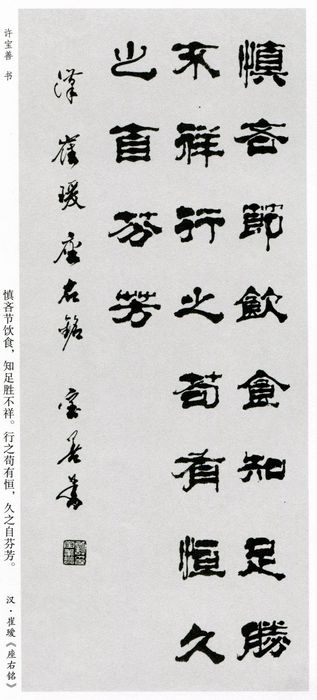 慎吝節飲食知足勝
不祥行之苟有恒久
之自芬芳
漢 崔瑗座右銘 宝善書
许宝善 书
慎吝节饮食，知足胜不祥。行之苟有恒，久之自芬芳。
汉·崔瑗《座右铭》